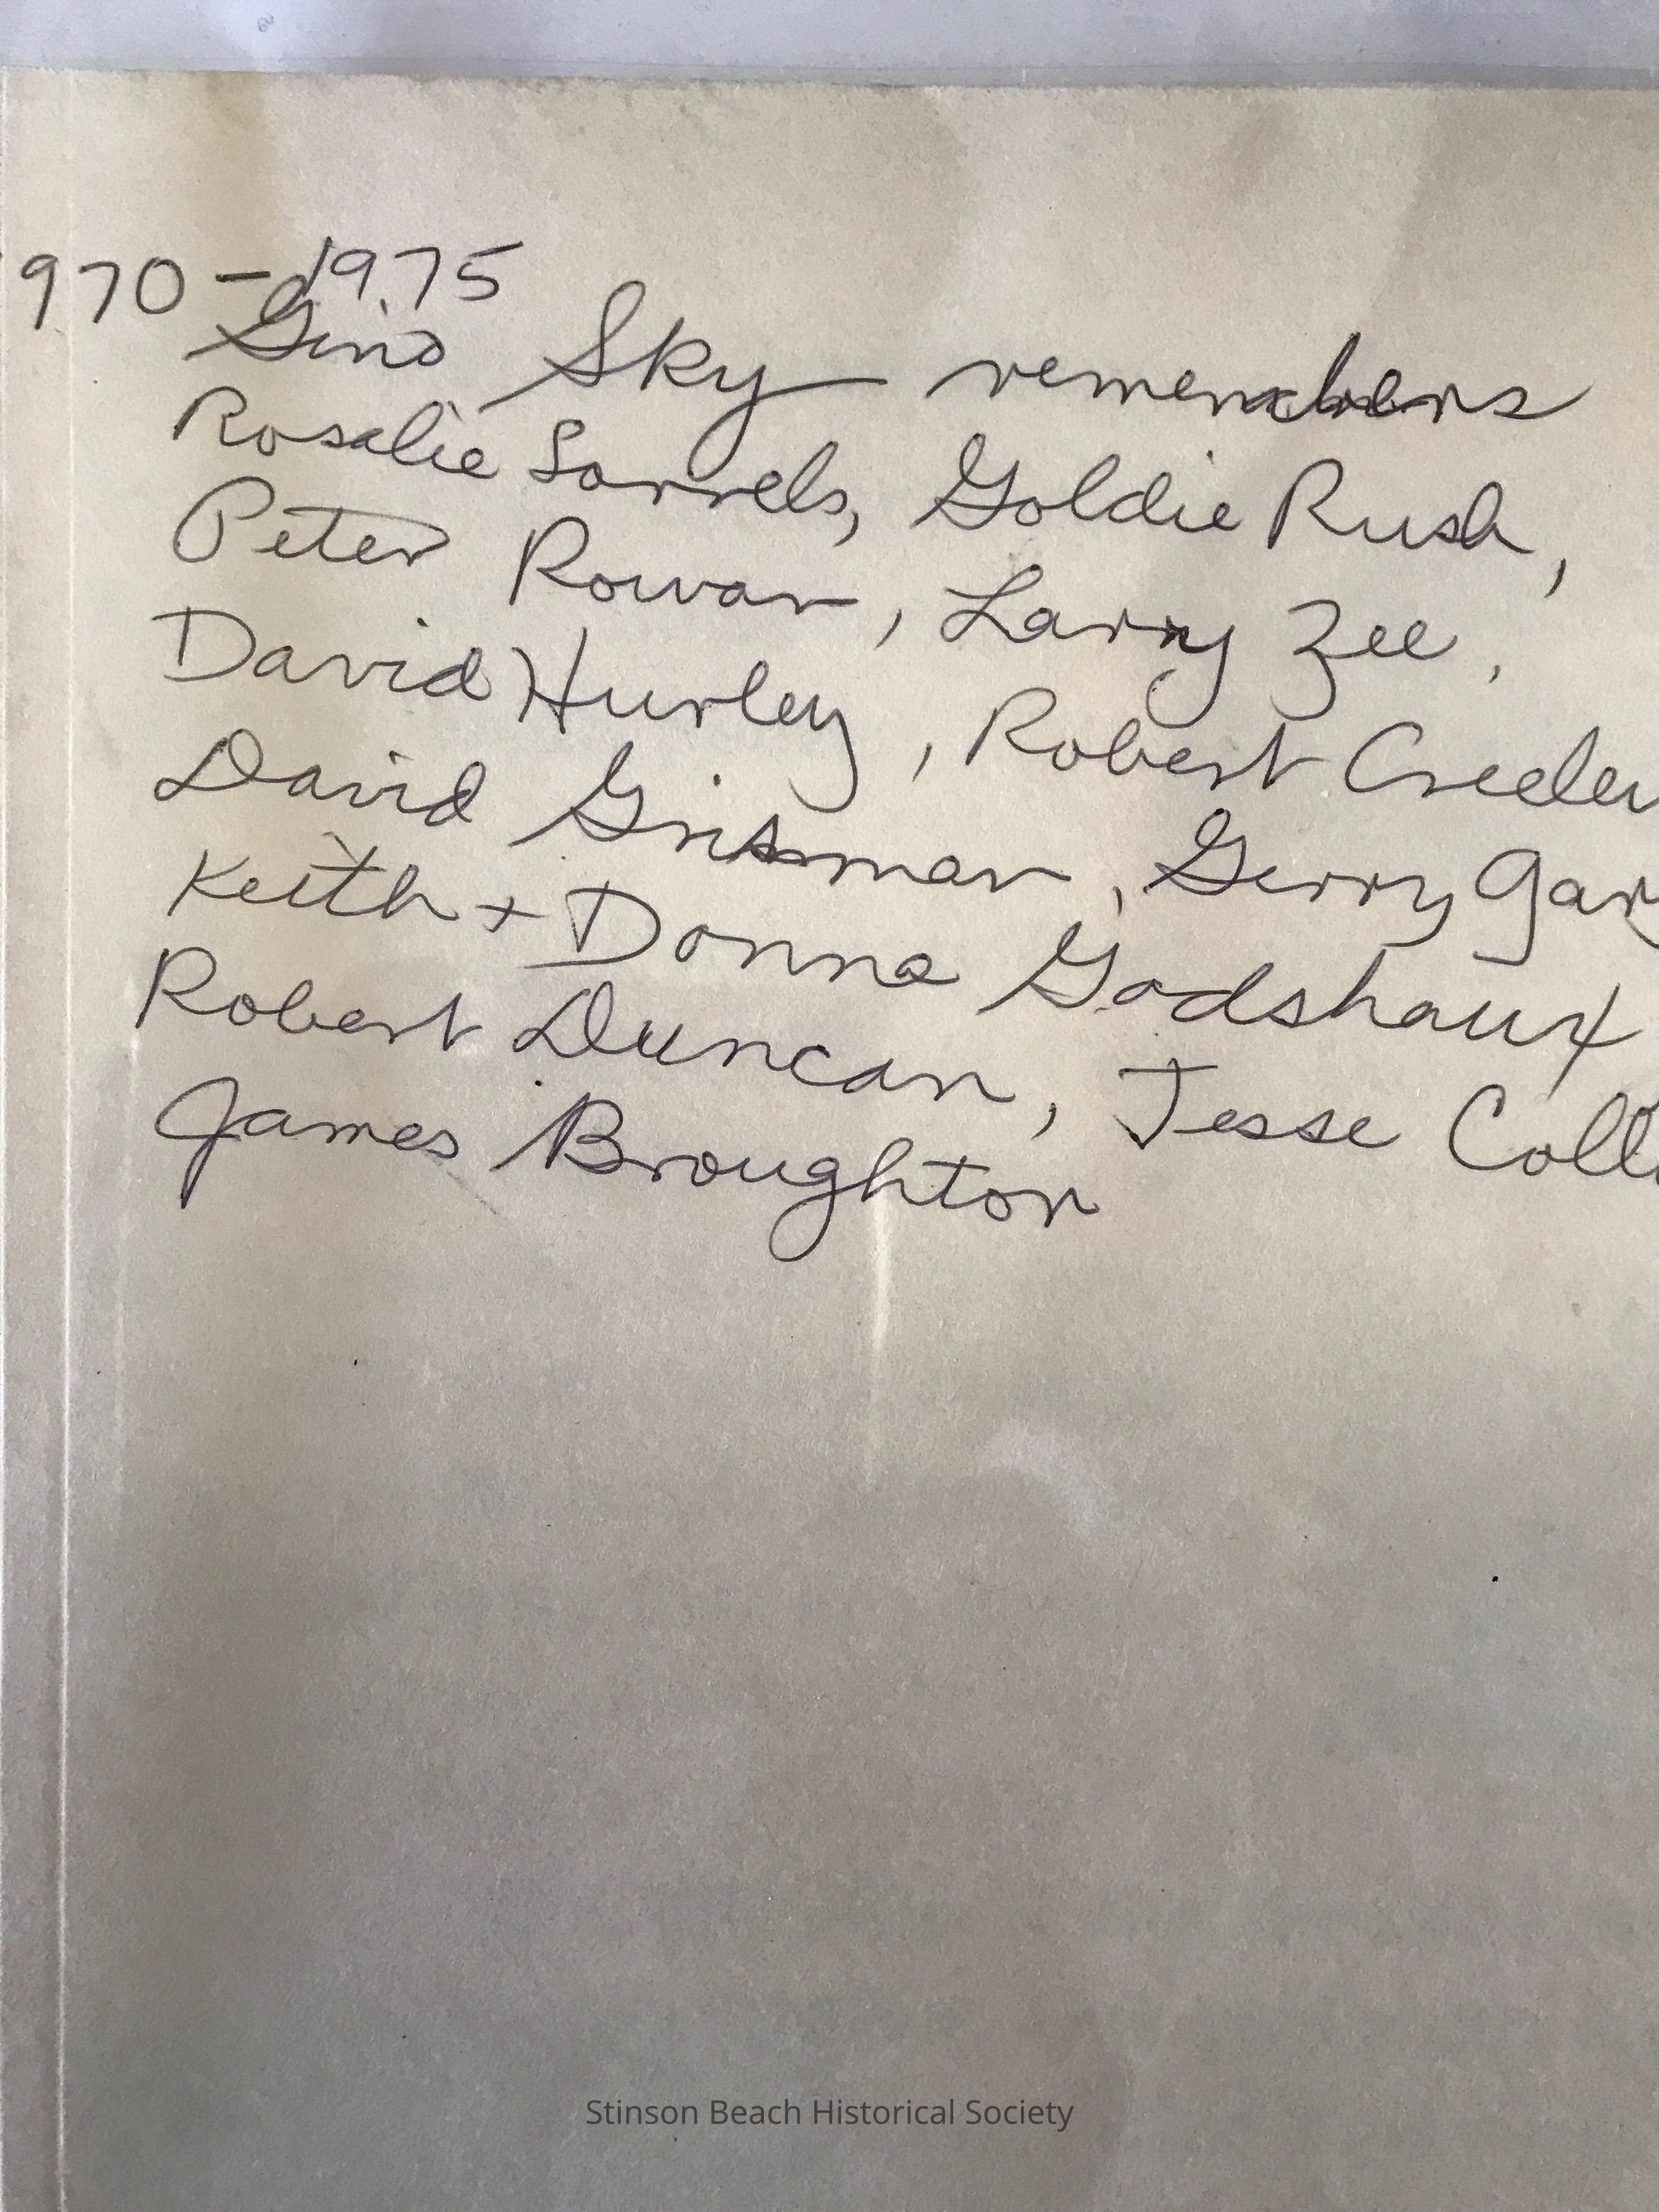 970-1975
Gino Sky remembers
Rosalie Sorrels, Goldie Rush,
Peter Rowan, Larry Zee,
David Hurley, Robert Creeley
David Grisman, Gerry Gar
Keith + Donna Godshaux
Robert Duncan, Jesse Coll
James Broughton
Stinson Beach Historical Society